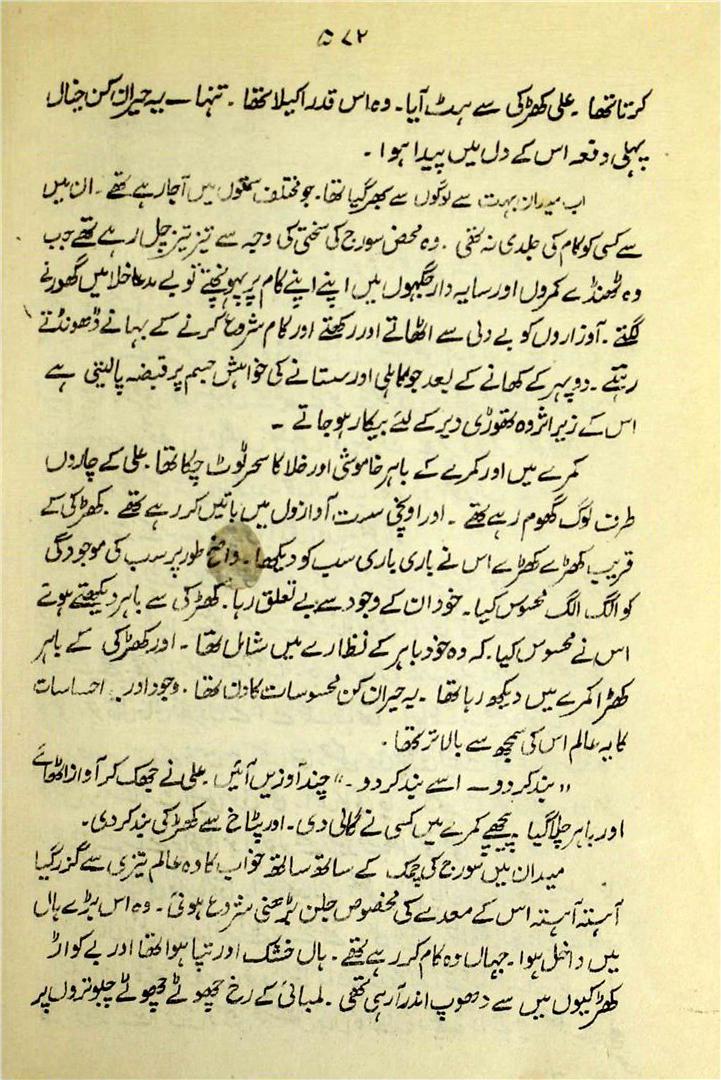 ۵۷۲
کرتا تھا ۔ علی کھڑکی سے ہٹ آیا۔ وہ اس قدر اکیلا تھا ۔ تنہا — یہ حیران کن خیال
پہلی دفعہ اس کے دل میں پیدا ہوا ۔
اب میدان بہت سے لوگوں سے بھر گیا تھا۔ جو مختلف سمتوں میں آ جا رہے تھے ۔ ان میں
سے کسی کو کام کی جلدی نہ تھی ۔ وہ محض سورج کی سختی کی وجہ سے تیز تیز چل رہے تھے جب
وہ ٹھنڈے کمروں اور سایہ دار جگہوں میں اپنے اپنے کام پر پہونچتے تو بے مدعا خلا میں گھورنے
لگتے ۔ اوزاروں کو بے دلی سے اٹھاتے اور رکھتے اور کام شروع کرنے کے بہانے ڈھونڈتے
رہتے ۔ دوپہر کے کھانے کے بعد جو کاہلی اور ستانے کی خواہش جسم پر قبضہ پالیتی ہے
اس کے زیر اثر وہ تھوڑی دیر کے لئے بیکار ہو جاتے ۔
کمرے میں اور کمرے کے باہر خاموشی اور خلا کا سحر ٹوٹ چکا تھا ۔ علی کے چاروں
طرف لوگ گھوم رہے تھے ۔ اور اونچی سست آوازوں میں باتیں کر رہے تھے ۔ کھڑکی کے
قریب کھڑے کھڑے اس نے باری باری سب کو دیکھا۔ واضح طور پر سب کی موجودگی
کو الگ الگ محسوس کیا۔ خود ان کے وجود سے بے تعلق رہا۔ کھڑکی سے باہر دیکھتے ہوئے
اس نے محسوس کیا ۔ کہ وہ خود باہر کے نظارے میں شامل تھا ۔ اور کھڑکی کے باہر
کھڑا کمرے میں دیکھ رہا تھا ۔ یہ حیران کن محسوسات کا دن تھا ۔ وجود اور احساسات
کا یہ عالم اس کی سمجھ سے بالا تر تھا ۔
”بند کر دو — اسے بند کر دو ۔“ چند آوازیں آئیں ۔ علی نے جھک کر آواز اٹھائے
اور باہر چلا گیا پیچھے کمرے میں کسی نے گالی دی۔ اور پٹاخ سے کھڑکی بند کر دی۔
میدان میں سورج کی چمک کے ساتھ ساتھ خواب کا وہ عالم تیزی سے گزر گیا
آہستہ آہستہ اس کے معدے کی مخصوص جلن بڑھنی شروع ہوئی ۔ وہ اس بڑے ہال
میں داخل ہوا ۔ جہاں وہ کام کر رہے تھے ۔ ہال خشک اور تپا ہوا تھا اور بے کواڑ
کھڑکیوں میں سے دھوپ اندر آ رہی تھی ۔ لمبائی کے رخ چھوٹے چھوٹے چبوتروں پر